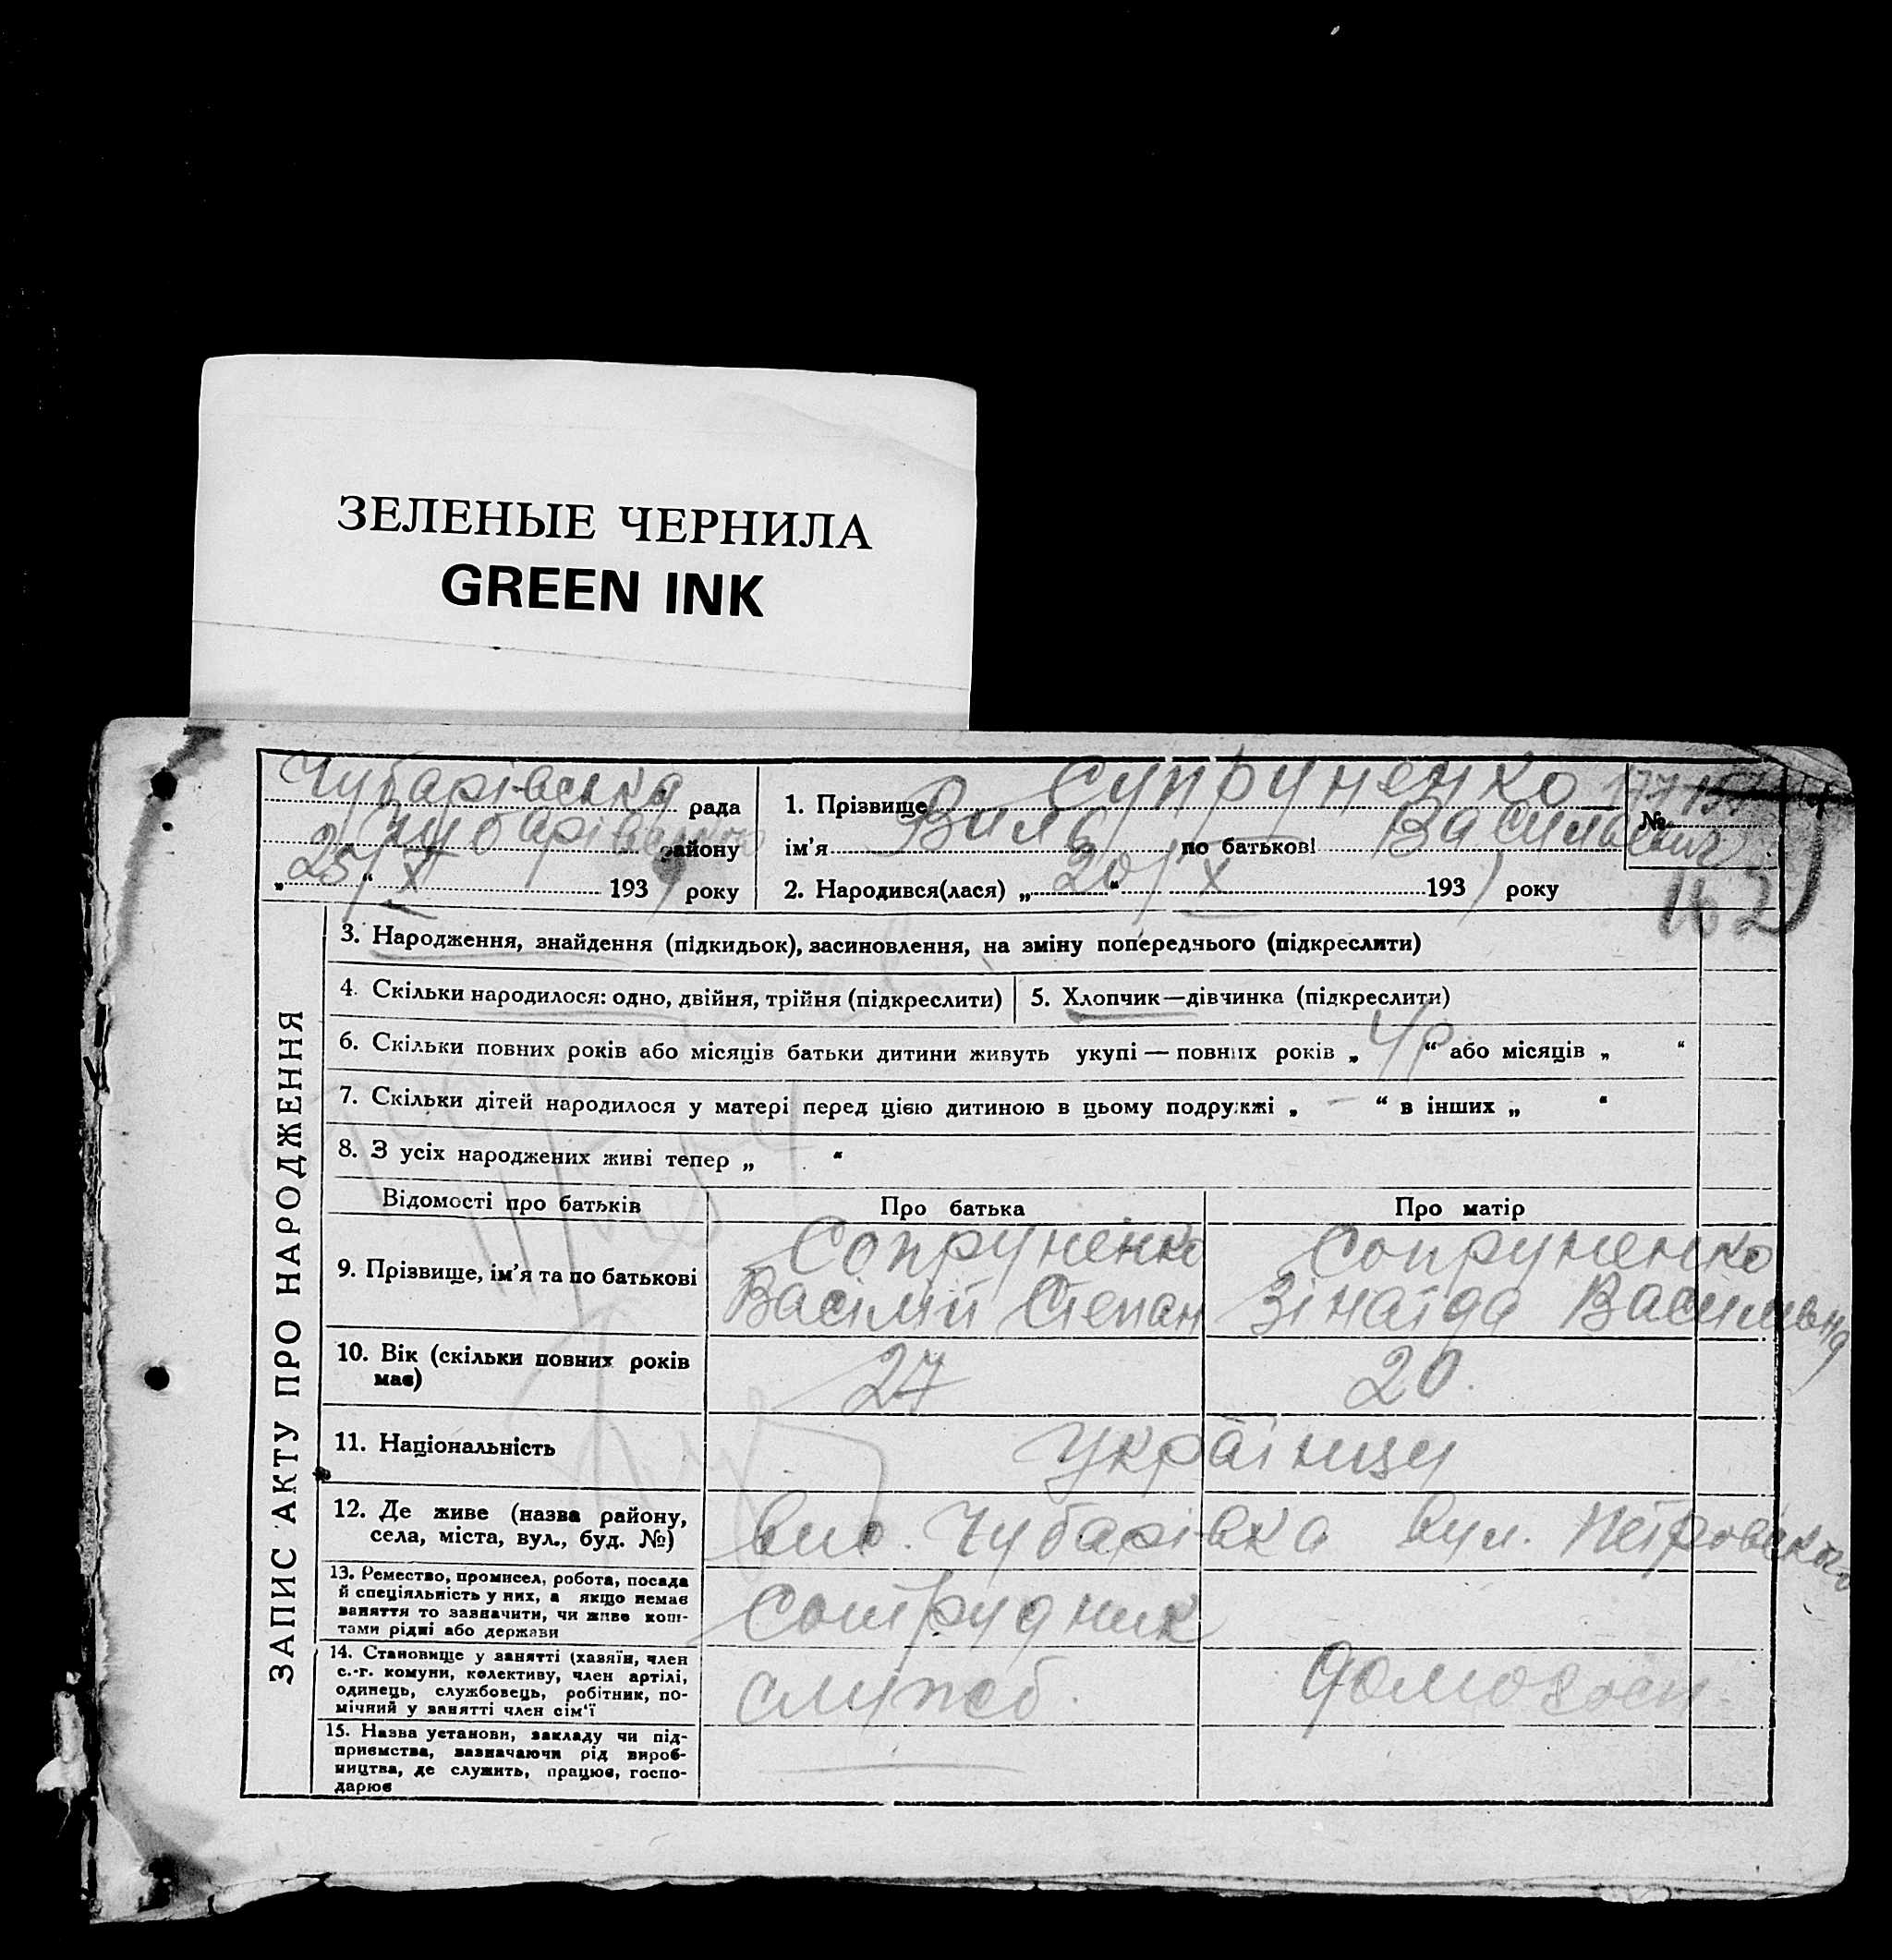 ЗЕЛЕНЫЕ ЧЕРНИЛА
GREEN INK
Чубарівська рада
Чубарівського району
„25/“ X 1931 року
1. Прізвище Супруненко
ім’я Виль по батькові Васильевич
2. Народився(лася) „20/“ X 1931 року
№ 177
162
ЗАПИС АКТУ ПРО НАРОДЖЕННЯ
3. Народження, знайдення (підкидьок), засиновлення, на зміну попереднього (підкреслити)
4. Скільки народилося: одно, двійня, трійня (підкреслити)
5. Хлопчик—дівчинка (підкреслити)
6. Скільки повних років або місяців батьки дитини живуть укупі — повних років „4р“ або місяців „ “
7. Скільки дітей народилося у матері перед цією дитиною в цьому подружжі „ – “ в інших „ “
8. З усіх народжених живі тепер „ “
Відомості про батьків
Про батька
Про матір
9. Прізвище, ім’я та по батькові
Сопруненко
Васілий Степан
Сопруненко
Зінаїда Васильвна
10. Вік (скільки повних років
має)
27
20.
11. Національність
Українци
12. Де живе (назва району,
села, міста, вул., буд. №)
Чубарівка вул. Петровского
13. Ремество, промисел, робота, посада
й спеціяльність у них, а якщо немає
заняття то зазначити, чи живе кош-
тами рідні або держави
Сотрудник
14. Становище у занятті (хазяїн, член
с.-г. комуни, колективу, член артілі,
одинець, службовець, робітник, по-
мічний у занятті член сім‘ї
служб.
домохозя
15. Назва установи, закладу чи під-
приємства, зазначаючи рід вироб-
ництва, де служить, працює, госпо-
дарює